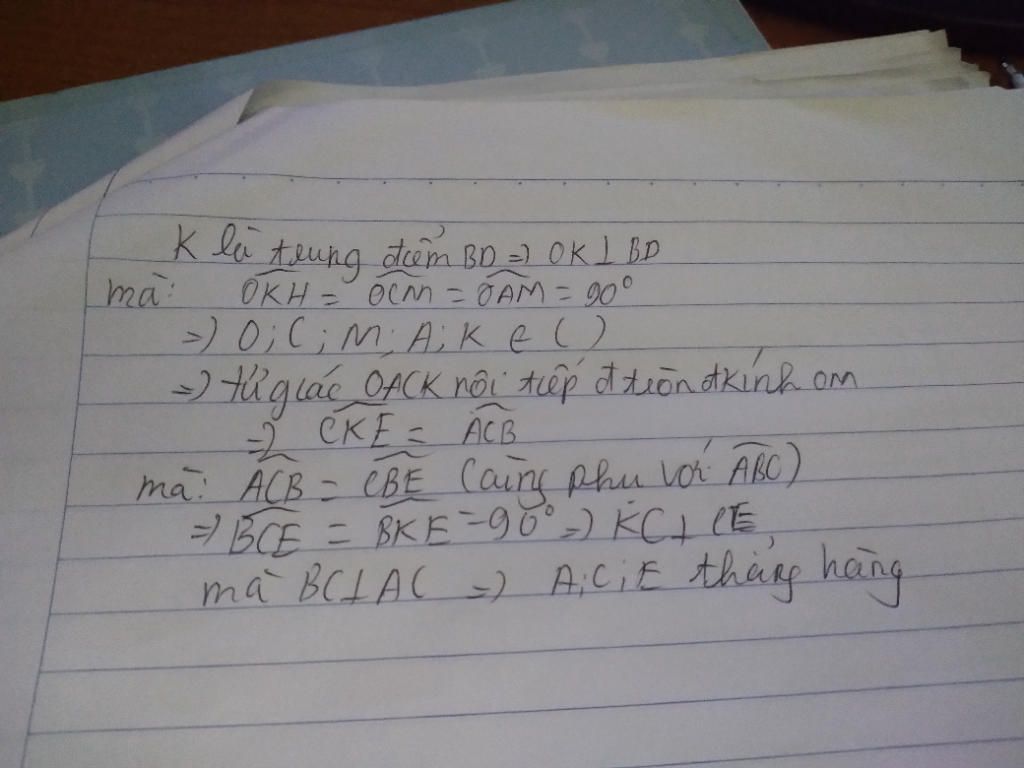 K là trung điểm BD => OK⊥BD
mà: OKH = OCM = OAM = 90°
=> O; C; M; A; K ∈ ( )
=> tứ giác OACK nội tiếp đ tròn đkính OM
=> CKE = ACB
mà: ACB = CBE (cùng phụ với ABC)
=> BCE = BKE = 90° => KC⊥CE
mà BC⊥AC => A; C; E thẳng hàng